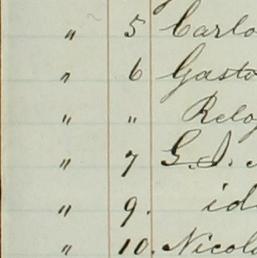 " 5 Carlo
" 6 Gasto
" " Relo
" 7 G. I.
" 9. id
" 10. Nicol